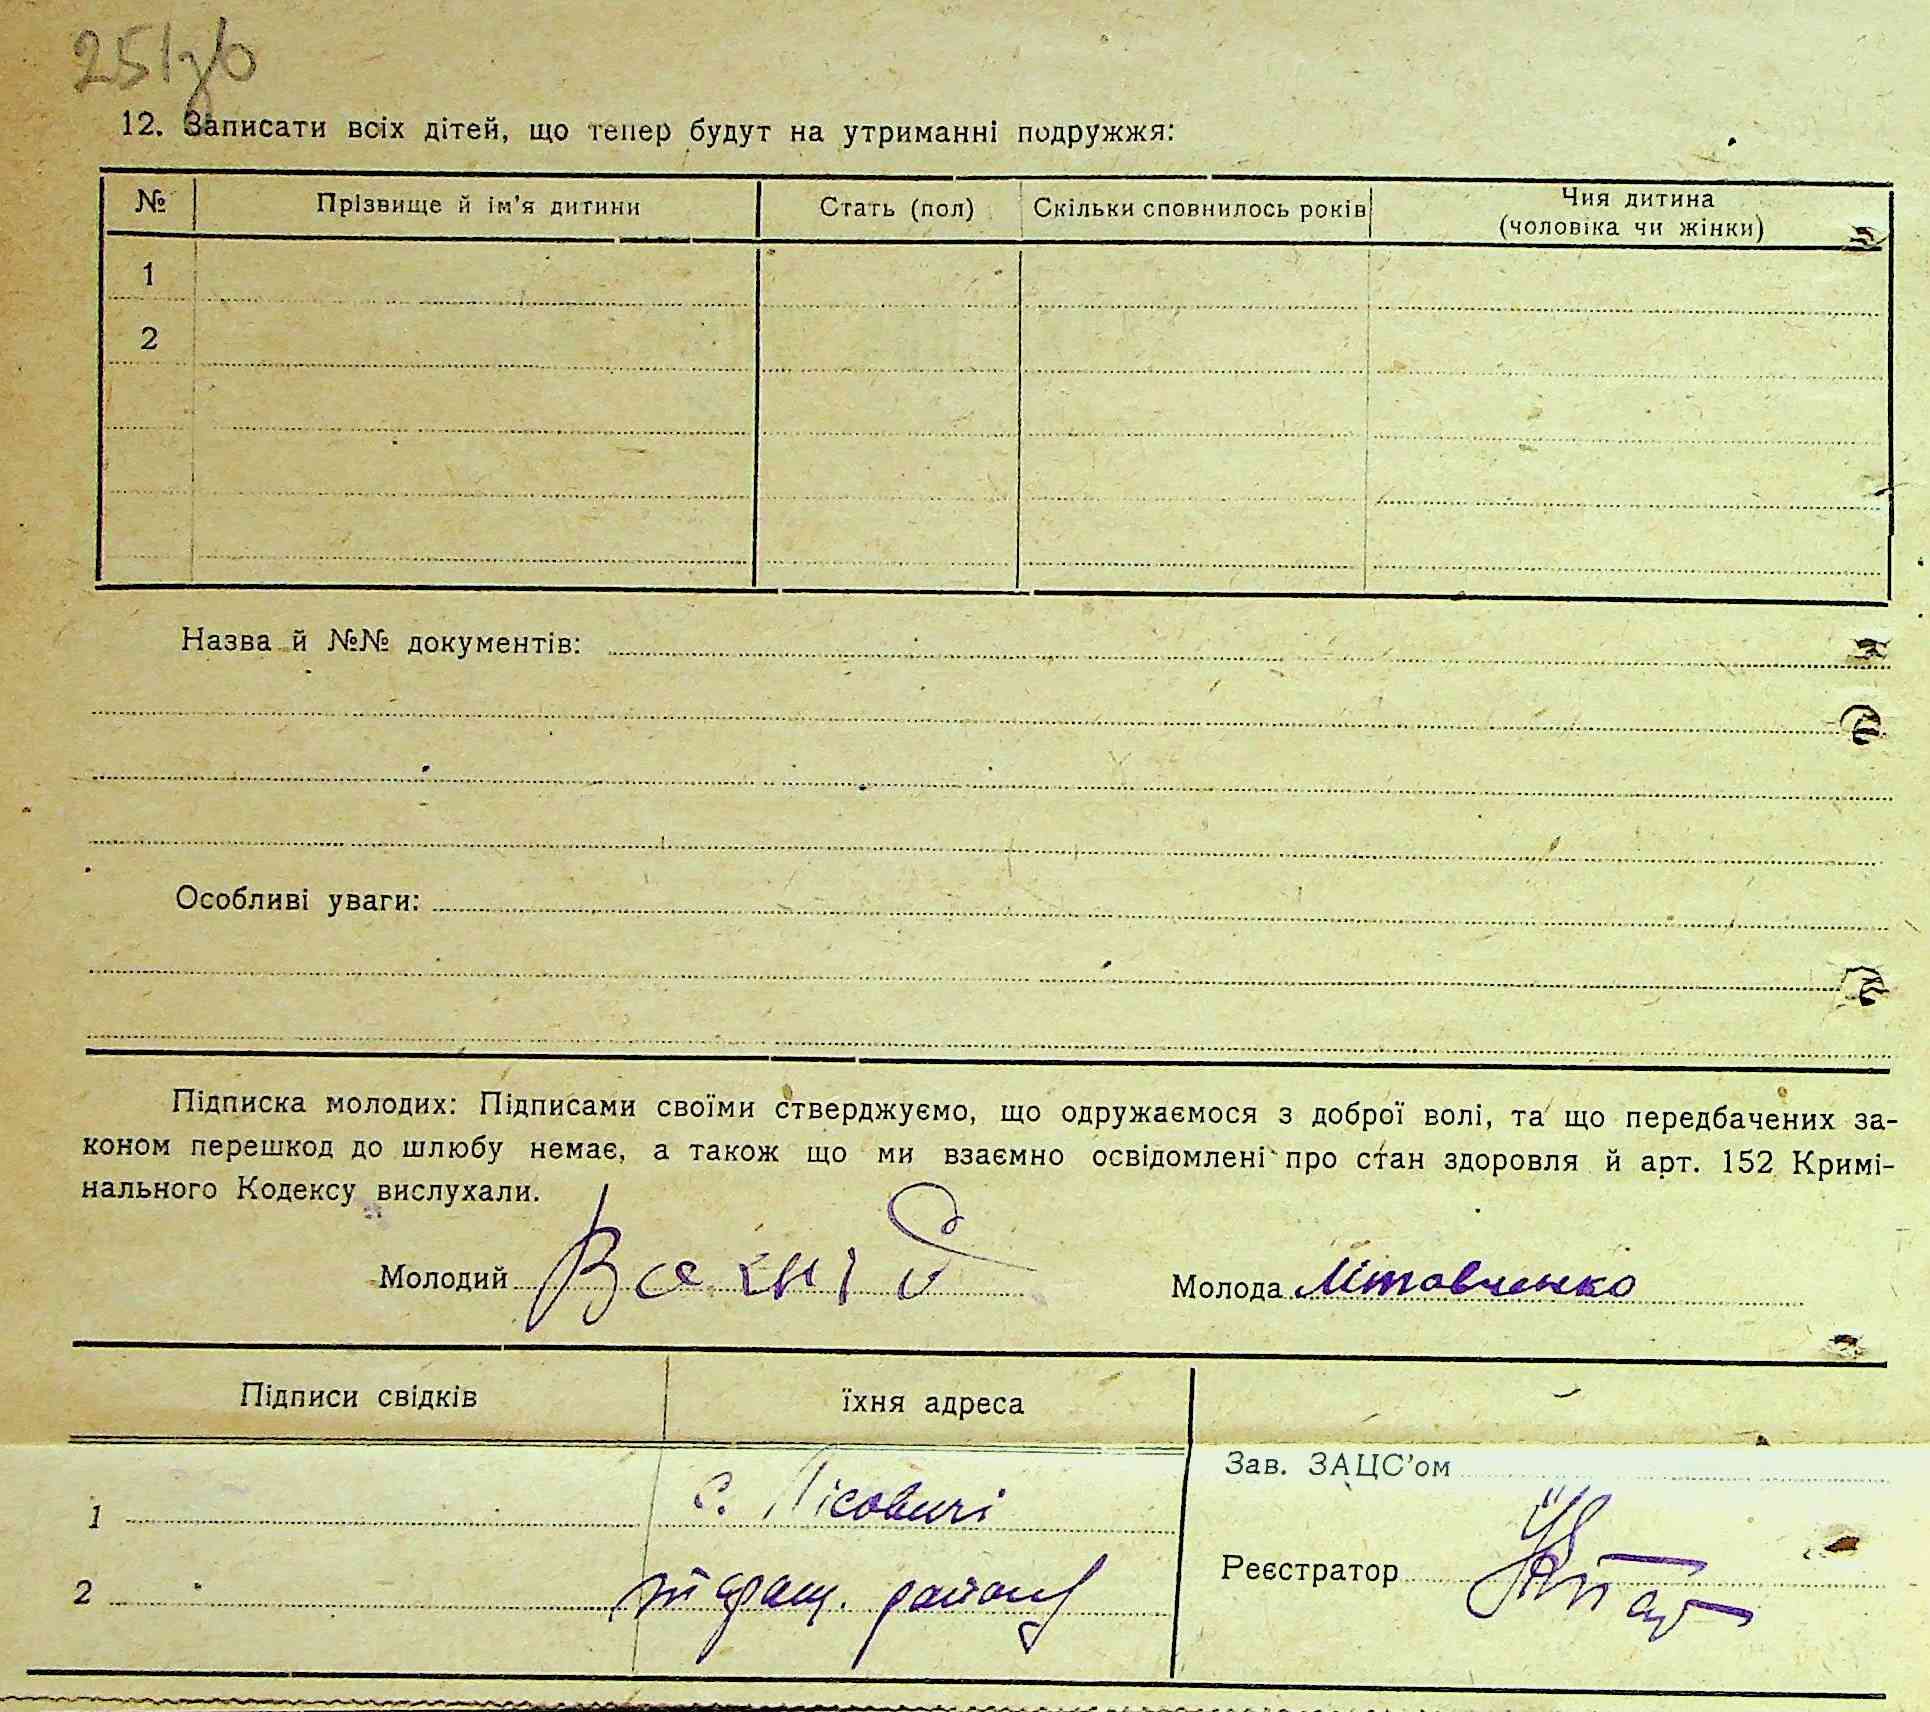 251зв
12. Записати всіх дітей, що тепер будут на утриманні подружжя:
№ Прізвище й ім'я дитини Стать (пол) Скільки сповнилось років Чия дитина
(чоловіка чи жінки)
1
2
Назва й №№ документів:
Особливі уваги:
Підписка молодих: Підписами своїми стверджуємо, що одружаємося з доброї волі, та що передбачених за-
коном перешкод до шлюбу немає, а також що ми взаємно освідомлені про стан здоровля й арт. 152 Кримі-
нального Кодексу вислухали.
Молодий Молода Літовченко
Підписи свідків їхня адреса
Зав. ЗАЦС'ом
1 с. Лісовичі
Реєстратор
2 Таращ. району